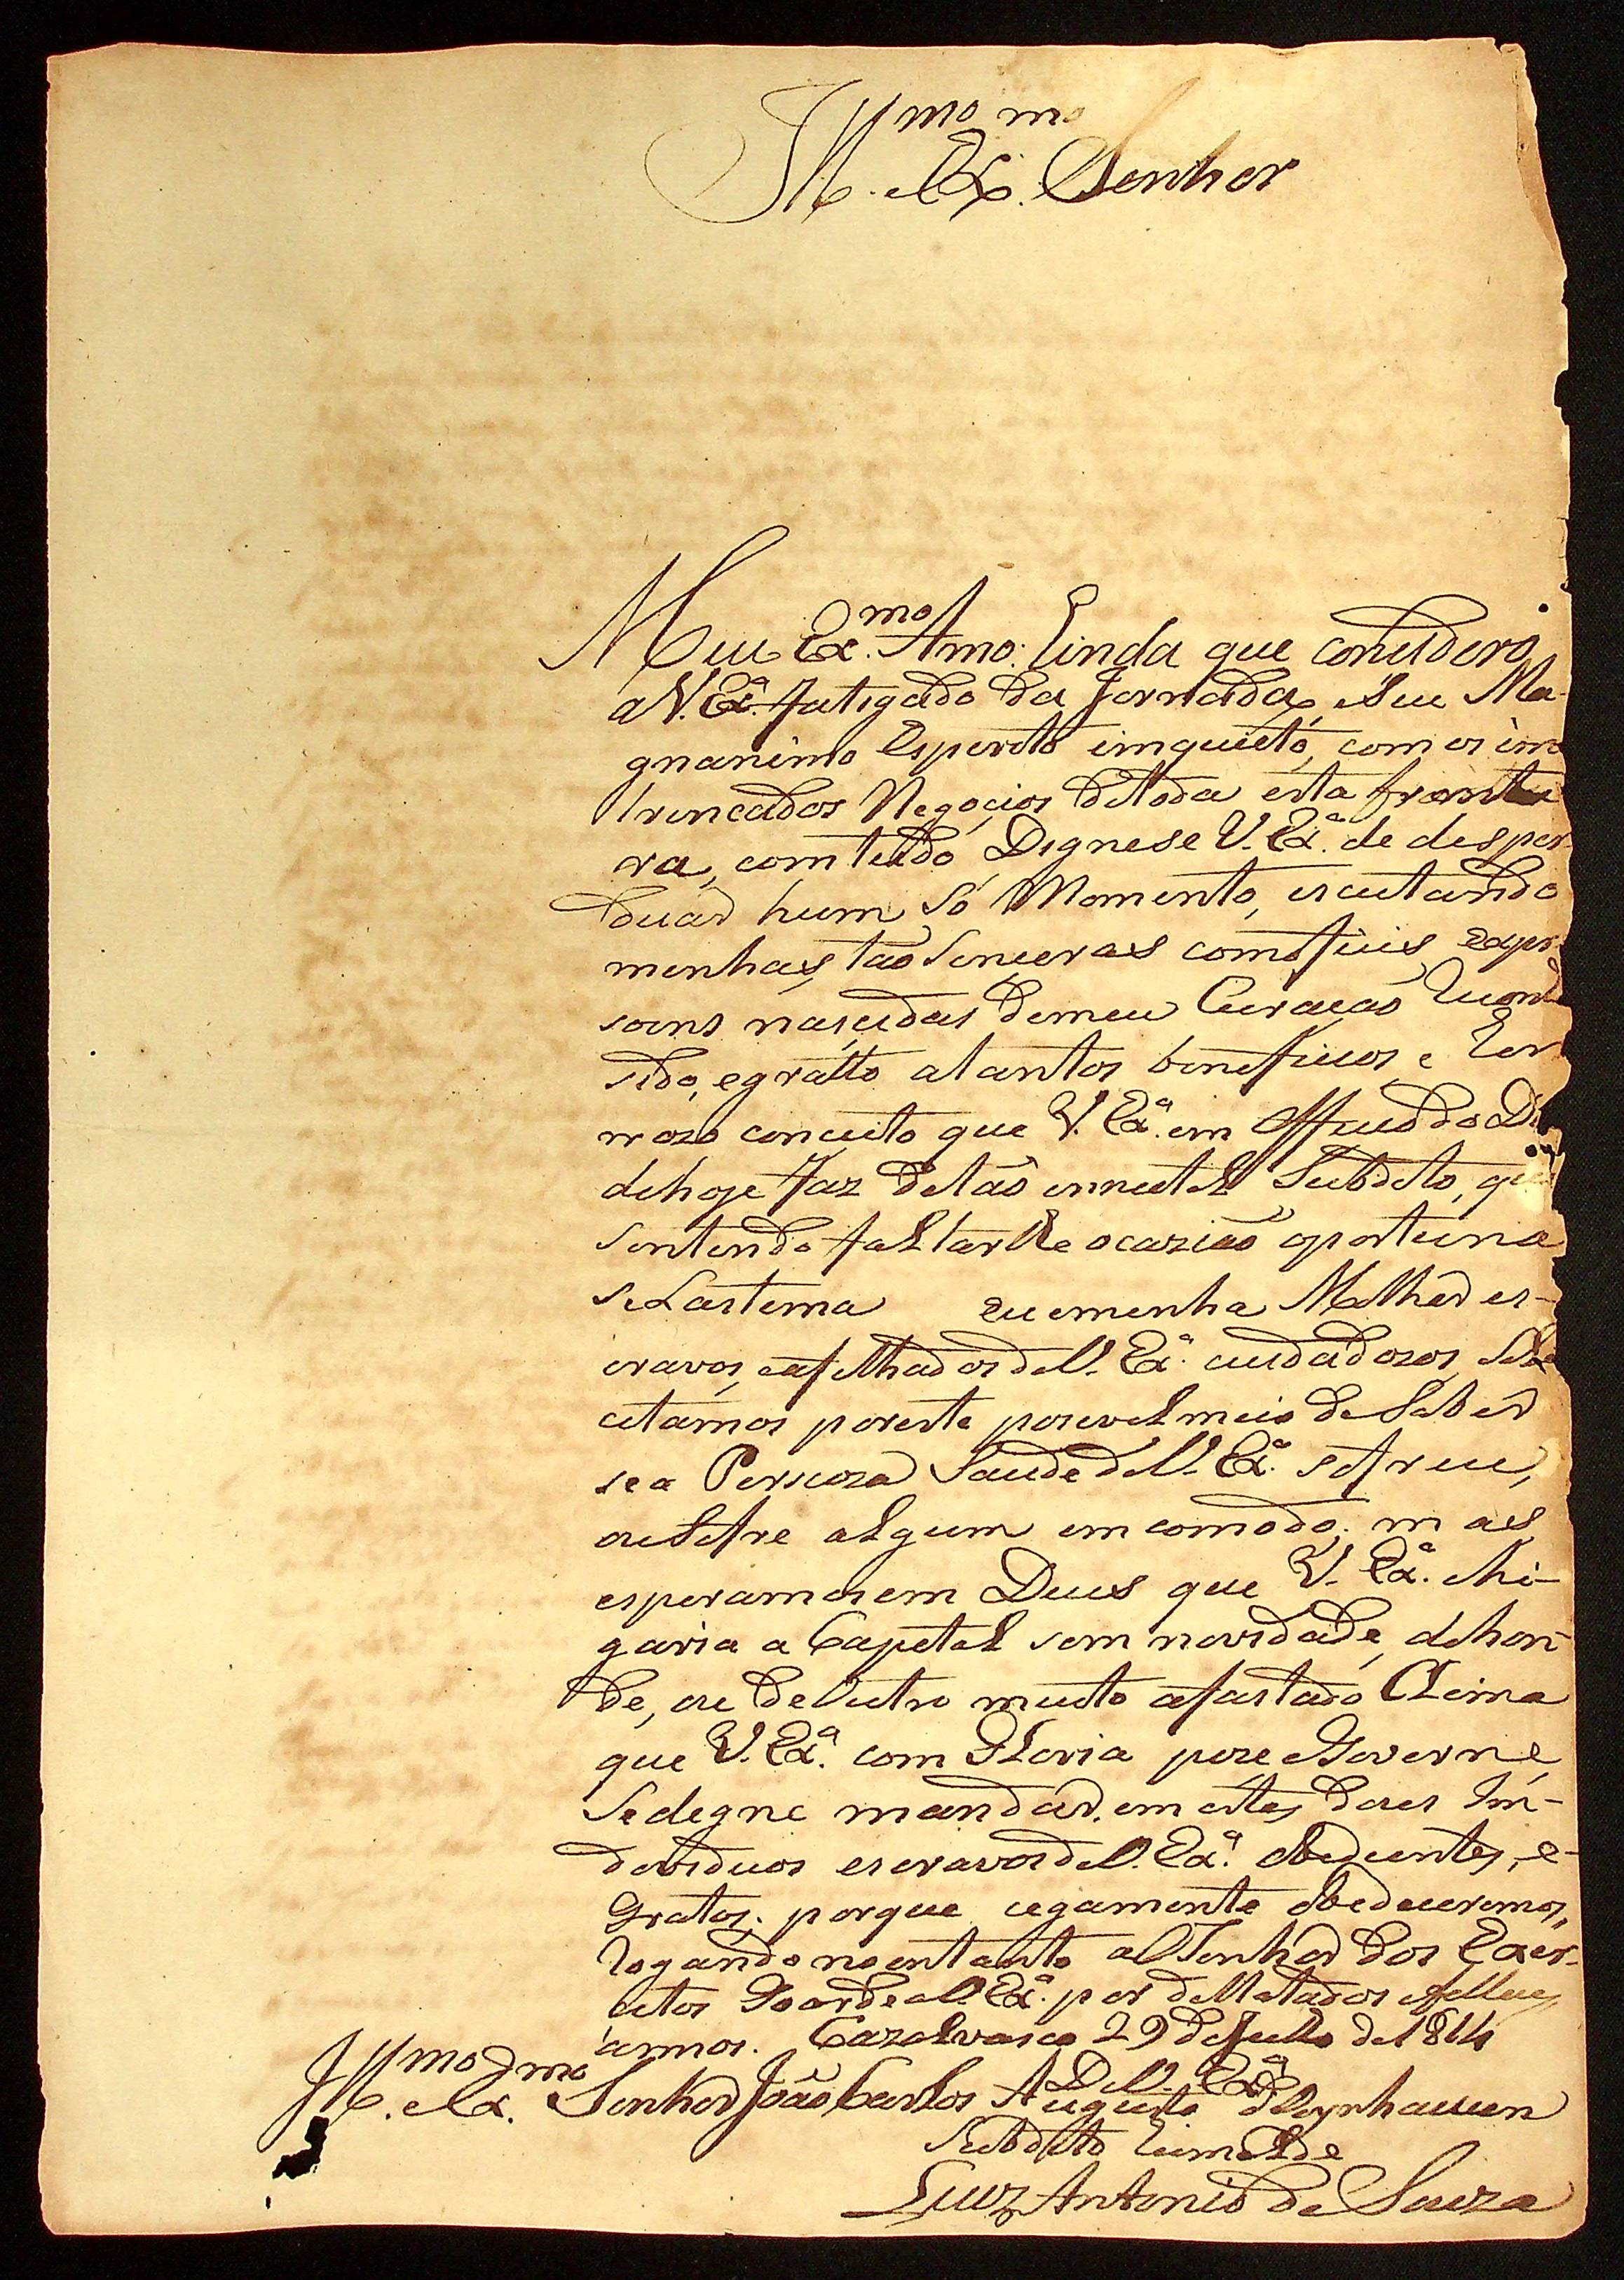 Ill.mo e Ex.mo Senhor
Meu Ex.mo Amo: Einda que considero
a V. Ex.a fatigado da Jornada, e Seu Ma-
gnanimo Esperito imquieto, com os im
trincados Negocios de toda esta frontei
ra, com tudo Dignese V. Ex.a de desper-
duçar hum só Momento, escutando
minhas, tao Sinceras como fieis, expre
soins nascidas de meu Curacaõ
sido, e gratto a tantos beneficios, e
mozo conceito que V. Ex.a em
de hoje faz de taõ innutil Subdito, que
sentindo faltarlhe ocaziaõ oportuna
se Lastema eu e minha Molher es-
cravos, e afilhados de V. Ex.a cuidadozos, Soli
citamos por este posivel meio de Saber
se a Perciosa Saude de V. Ex.a sofreu,
ou Sofre algum emcomodo; mas
esperamos em Deus que V. Ex.a chi-
garia a Capital sem novidade, de hon-
de, ou de Outro muito afastado Clima
que V. Ex.a com Gloria pize e Governe,
Se digne mandar em estes dois Im-
dividuos escravos de V. Ex.a obedientes, e
Gratos; porque cegamente obedeceremos,
rogando no entanto ao Senhor dos Exer-
citos Goarde a V. Ex.a por delatados e felises
annos. Cazalvasco 29 de Julho de 1811
De V. Ex.a
Ill.mo e Ex.mo Senhor João Carlos Augusto d'Oeynhausen
Subdito Umilde
Luiz Antonio de Souza